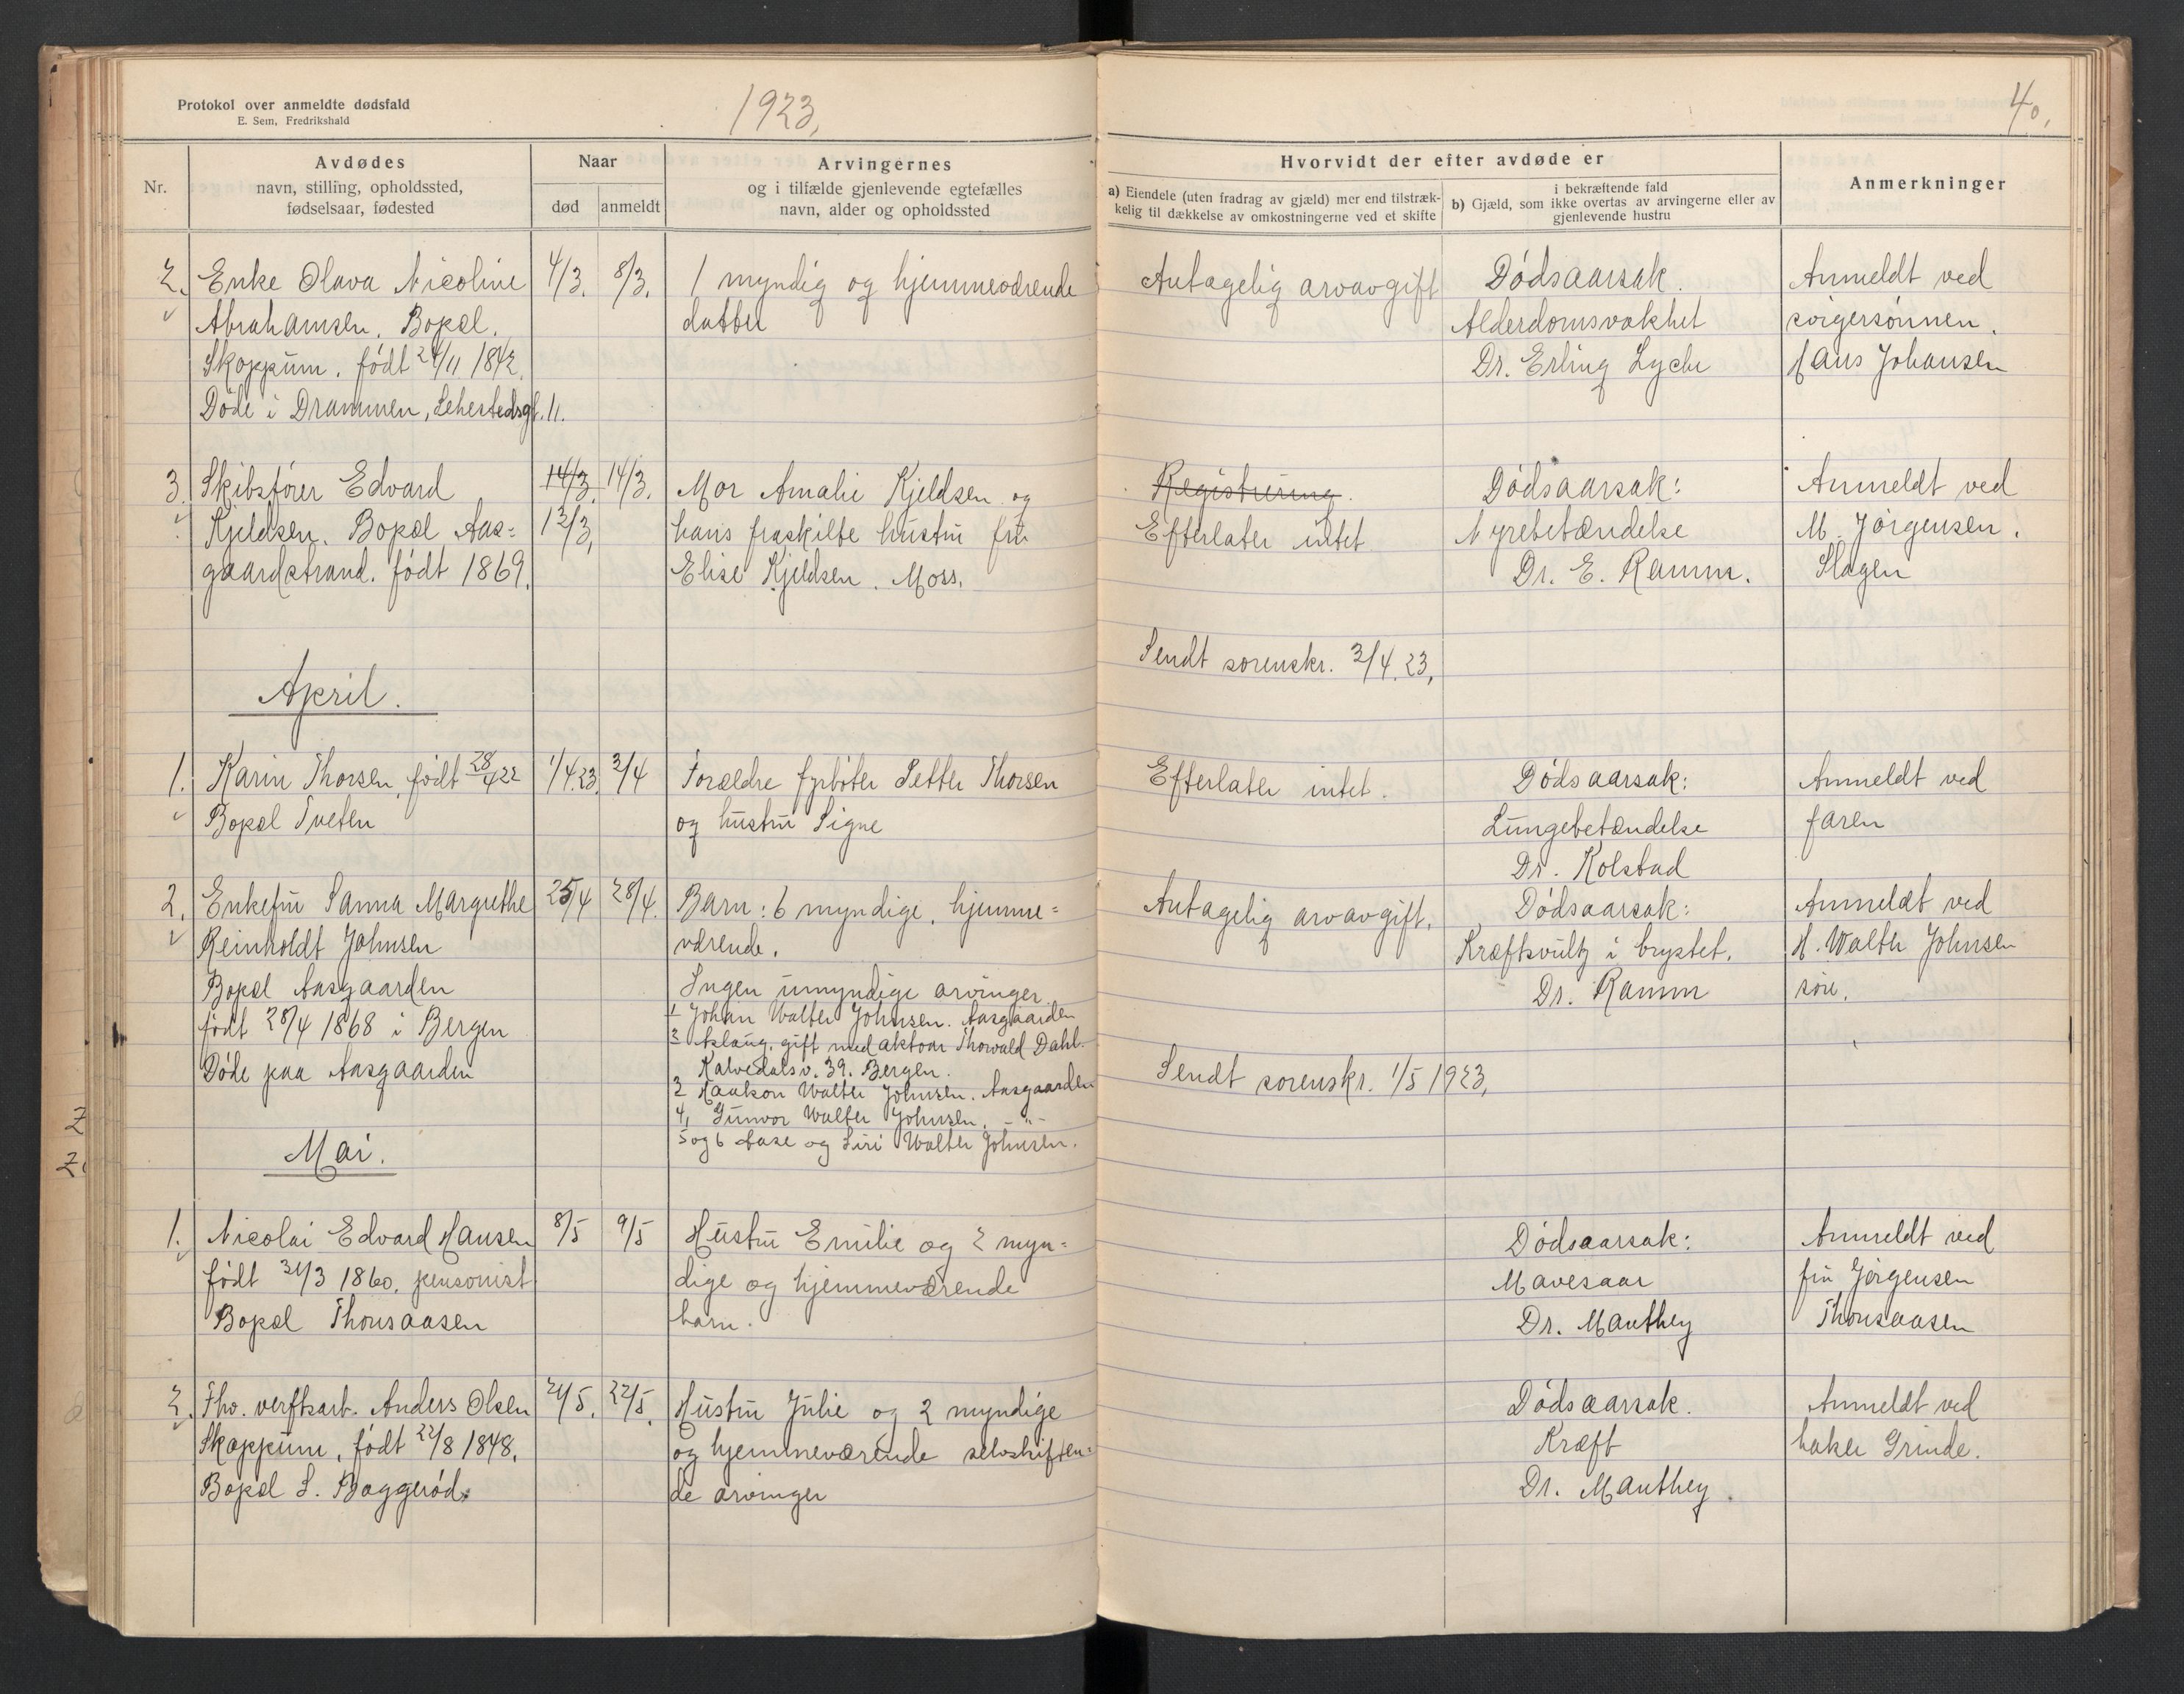 Protokol over anmeldte dødsfald
E. Sem, Fredrikshald
1923,
Nr.
Avdødes
navn, stilling, opholdssted,
fødselsaar, fødested
Naar
død
anmeldt
Arvingernes
og i tilfælde gjenlevende egtefælles
navn, alder og opholdssted
2.
Enke Olava Nicoline
Abrahamsen. Bopæl.
Skoppum. født 24/11 1842.
Døde i Drammen, 11.
4/3.
8/3.
1 myndig og hjemmeværende
datter
3.
Skibsfører Edvard
Kjeldsen. Bopæl Aas-
gaardstrand. født 1869.
14/3.
13/3,
14/3.
Mor Amalie Kjeldsen og
hans fraskilte hustru fru
Elise Kjeldsen. Moss.
April.
1.
Karin Thorsen, født 28/4 22
Bopæl Tveten
1/4.23.
3/4
Forældre fyrbøter Petter Thorsen
og hustru Signe
2.
Enkefru Sanna Margrethe
Reinholdt Johnsen
Bopæl Aasgaarden
født 28/4 1868 i Bergen
Døde paa Aasgaarden
25/4
28/4.
Barn: 6 myndige, hjemme-
værende.
Ingen umyndige arvinger.
1 Johan Walter Johnsen. Aasgaarden
2 Aslaug, gift med aktoar Thorvald Dahl.
Kalvedalsv. 39. Bergen.
3 Haakon Walter Johnsen. Aasgaarden
4, Gunvor Walter Johnsen. -"-
5 og 6 Aase og Siri Walter Johnsen.
Mai.
1.
Nicolai Edvard Hansen
født 31/3 1860, pensonist
Bopæl Thorsaasen
8/5
9/5
Hustru Emilie og 2 myn-
dige og hjemmeværende
barn.
2.
Fhv. verftsarb. Anders Olsen
Skoppum, født 22/8 1848.
Bopæl S. Baggerød.
21/5.
22/5.
Hustru Julie og 2 myndige
og hjemmeværende selvskiften-
de arvinger
40.
Hvorvidt der efter avdøde er
a) Eiendele (uten fradrag av gjæld) mer end tilstræk-
kelig til dækkelse av omkostningerne ved et skifte
i bekræftende fald
b) Gjæld, som ikke overtas av arvingerne eller av
gjenlevende hustru
Anmerkninger
Antagelig arvavgift
Dødsaarsak.
Alderdomsvakhet
Dr. Erling Lyche
Anmeldt ved
svigersønnen.
Hans Johansen
Registrering.
Efterlater intet
Dødsaarsak:
Nyrebetændelse
Dr. E. Ramm.
Anmeldt ved
M. Jørgensen.
Slagen
Sendt sorenskr. 3/4. 23,
Efterlater intet.
Dødsaarsak:
Lungebetændelse
Dr. Kolstad
Anmeldt ved
faren
Antagelig arvavgift.
Dødsaarsak:
Kræftsvulst i brystet.
Dr. Ramm
Anmeldt ved
H. Walter Johnsen
søn.
Sendt sorenskr. 1/5 1923,
Dødsaarsak:
Mavesaar
Dr. Manthey
Anmeldt ved
fru Jørgensen
Thorsaasen
Dødsaarsak.
Kræft
Dr. Manthey
Anmeldt ved
baker Grinde.